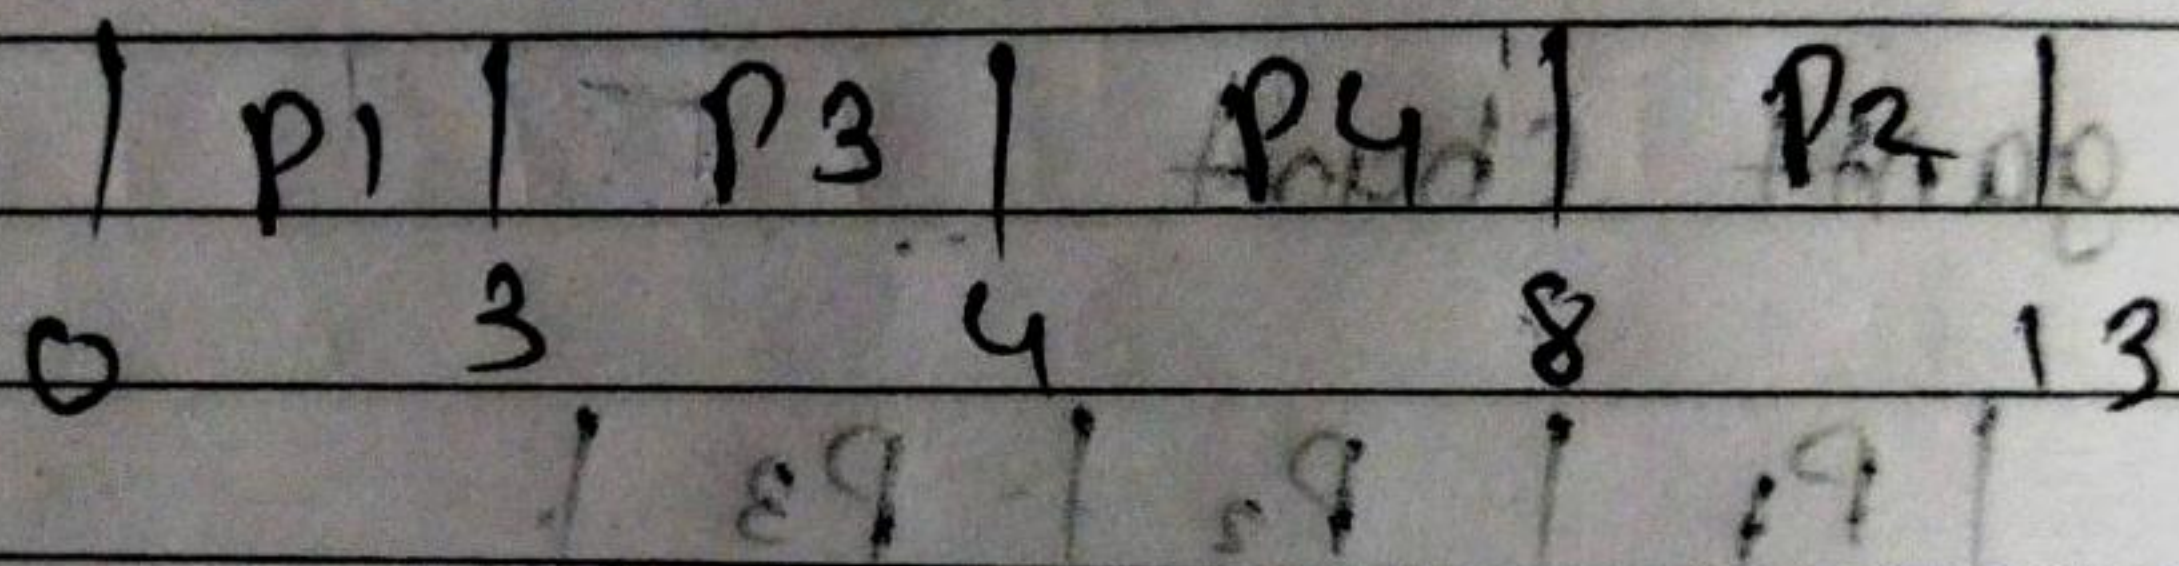 | P1 | P3 | P4 | P2 |
0 3 4 8 13